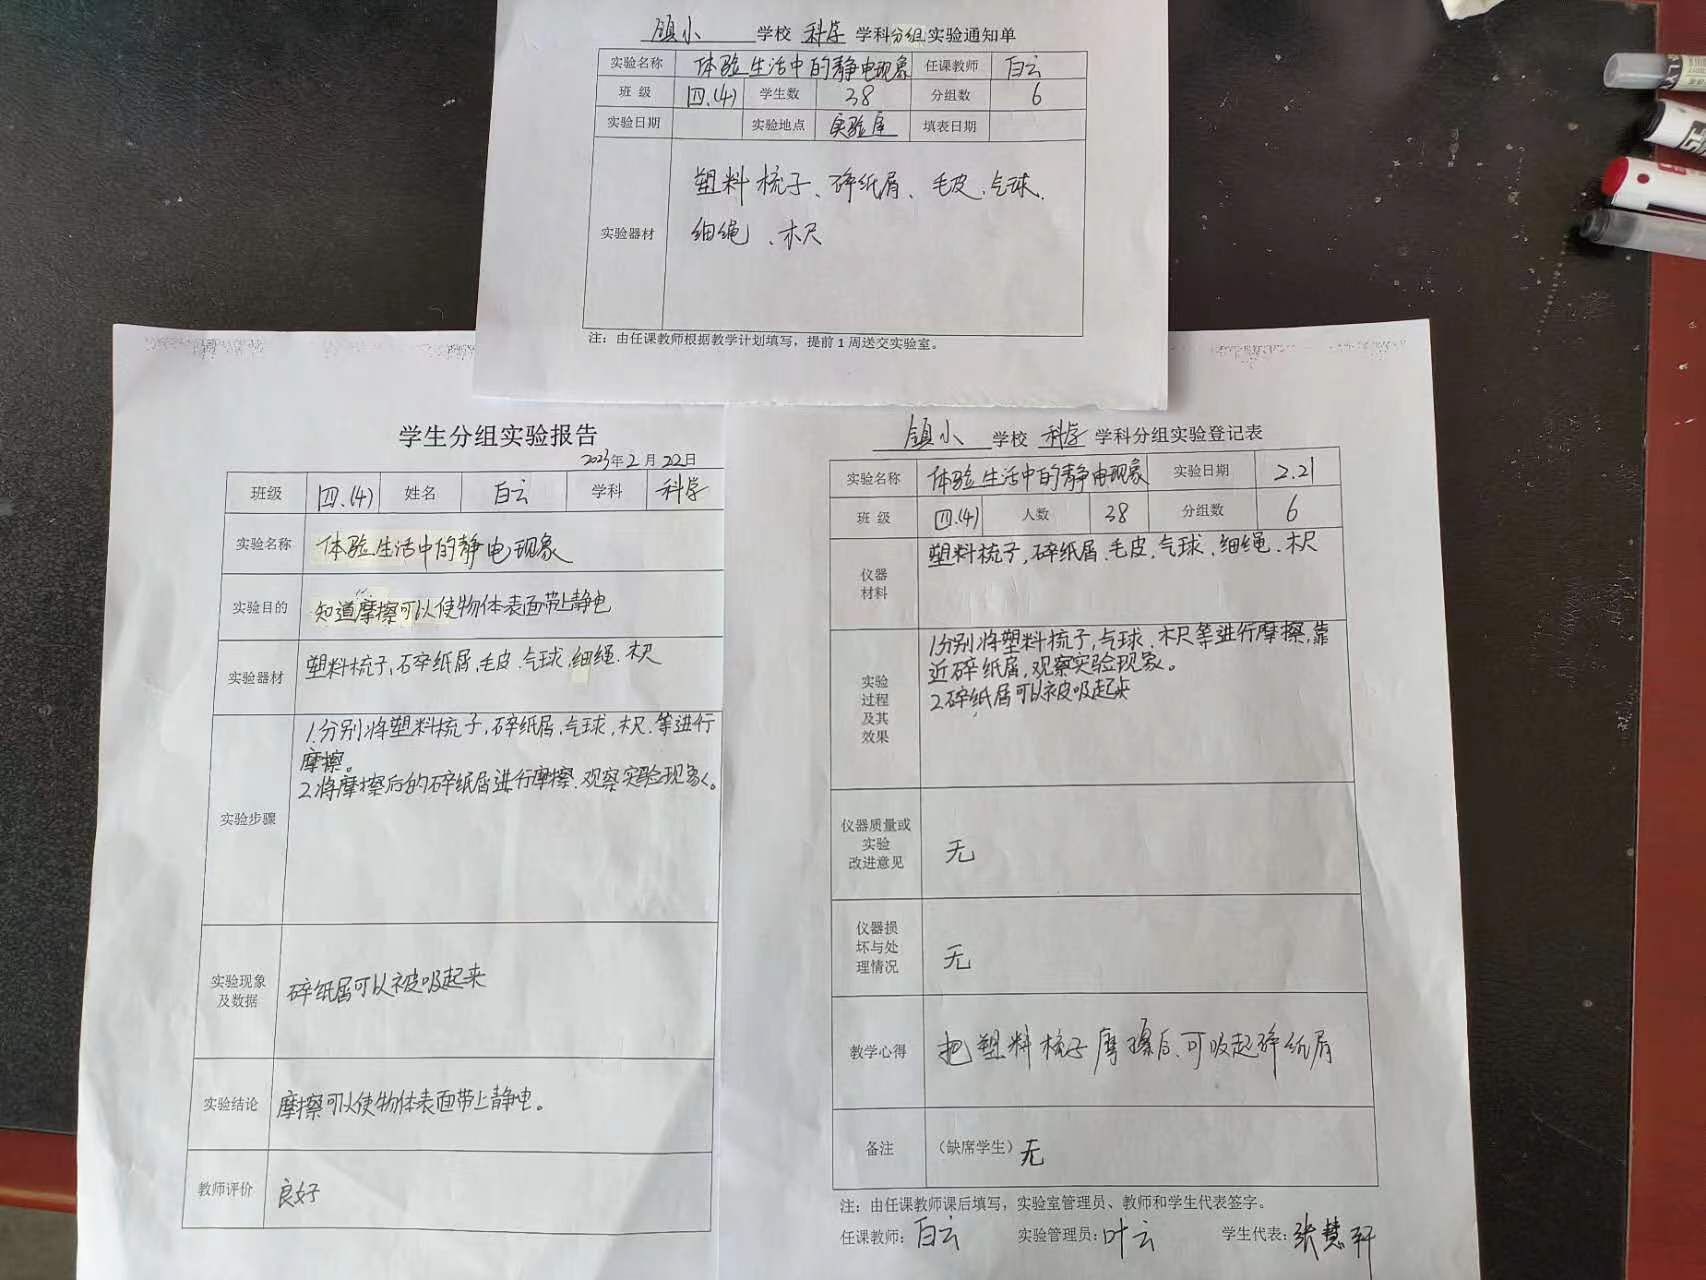 镇小 学校 科学 学科分组实验通知单
实验名称 体验生活中的静电现象 任课教师 白云
班 级 四.(4) 学生数 38 分组数 6
实验日期 实验地点 实验室 填表日期
塑料梳子、碎纸屑、毛皮、气球.
实验器材 细绳、木尺
注：由任课教师根据教学计划填写，提前1周送交实验室。
学生分组实验报告
2023年2月22日
班级 四.(4) 姓名 白云 学科 科学
实验名称 体验生活中的静电现象
实验目的 知道摩擦可以使物体表面带上静电
实验器材 塑料梳子,石碎纸屑,毛皮.气球,细绳.木尺
1.分别将塑料梳子,碎纸屑,气球,木尺.等进行
摩擦。
2.将摩擦后的碎纸屑进行摩擦.观察实验现象。
实验步骤
实验现象
及数据 碎纸屑可以被吸起来
实验结论 摩擦可以使物体表面带上静电。
教师评价 良好
镇小 学校 科学 学科分组实验登记表
实验名称 体验生活中的静电现象 实验日期 2.21
班 级 四.(4) 人数 38 分组数 6
仪器
材料 塑料梳子,碎纸屑.毛皮.气球.细绳.木尺
1.分别将塑料梳子,气球.木尺等进行摩擦,靠
近碎纸屑,观察实验现象。
2.碎纸屑可以被吸起来
实验
过程
及其
效果
仪器质量或
实验
改进意见 无
仪器损
坏与处
理情况 无
教学心得 把塑料梳子摩擦后、可吸起碎纸屑
备注 （缺席学生）无
注：由任课教师课后填写，实验室管理员、教师和学生代表签字。
任课教师：白云 实验管理员：叶云 学生代表：张慧轩